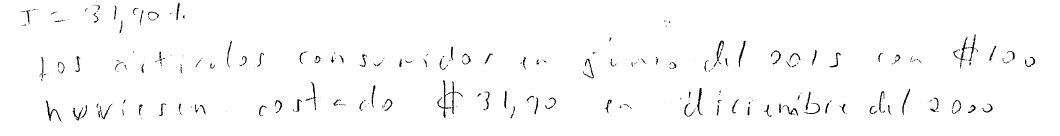 I = 31,90 %
los articulos consumidos en junio del 2015 con $100
huviesen costado $ 31,90 en diciembre del 2000